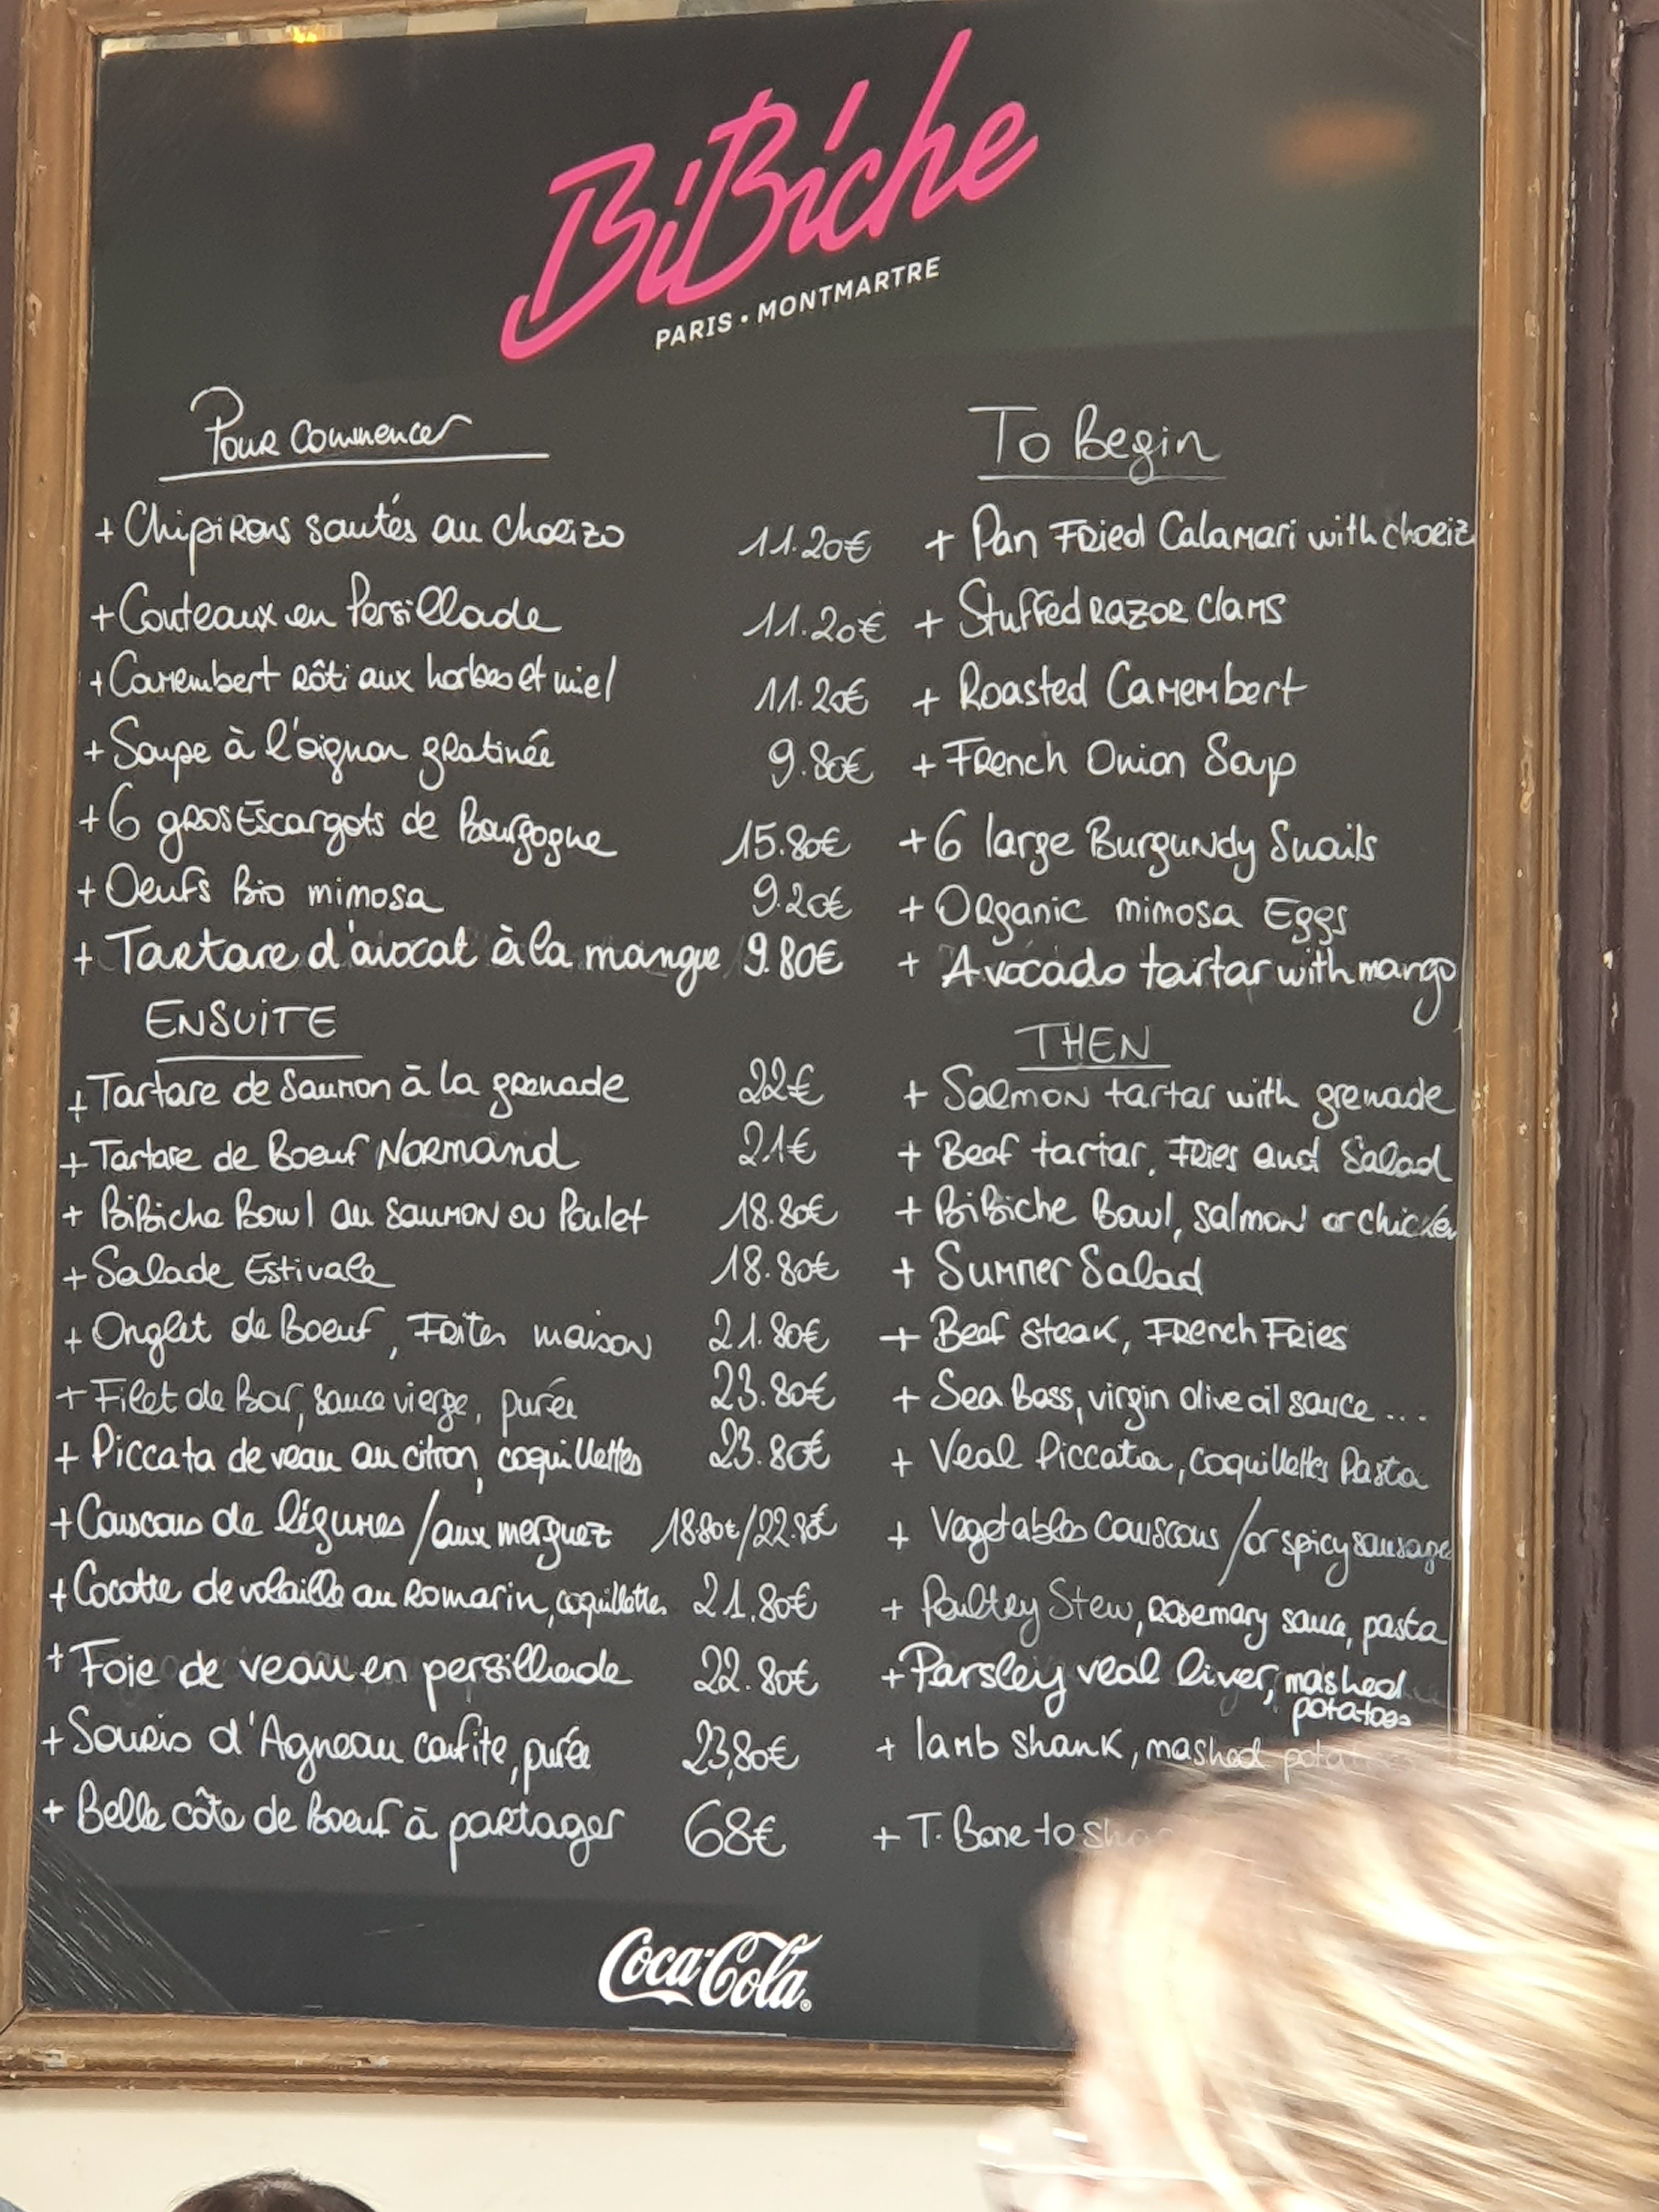 BiBiche
PARIS • MONTMARTRE
Pour commencer
+ Chipirons sautés au chorizo 11.20€
+ Couteaux en Persillade 11.20€
+ Camembert rôti aux herbes et miel 11.20€
+ Soupe à l'oignon gratinée 9.80€
+ 6 gros Escargots de Bourgogne 15.80€
+ Oeufs Bio mimosa 9.20€
+ Tartare d'avocat à la mangue 9.80€
ENSUITE
+ Tartare de Saumon à la grenade 22€
+ Tartare de Boeuf Normand 21€
+ BiBiche Bowl au saumon ou Poulet 18.80€
+ Salade Estivale 18.80€
+ Onglet de Boeuf, Frites maison 21.80€
+ Filet de Bar, sauce vierge, purée 23.80€
+ Piccata de veau au citron, coquillettes 23.80€
+ Couscous de légumes / aux merguez 18.80€/22.80€
+ Cocotte de volaille au Romarin, coquillettes 21,80€
+ Foie de veau en persilliade 22.80€
+ Souris d'Agneau confite, purée 23,80€
+ Belle côte de Boeuf à partager 68€
To Begin
+ Pan Fried Calamari with choriz
+ Stuffed Razor clams
+ Roasted Camembert
+ French Onion Soup
+ 6 large Burgundy Snails
+ Organic mimosa Eggs
+ Avocado tartar with mango
THEN
+ Salmon tartar with grenade
+ Beef tartar, Fries and Salad
+ BiBiche Bowl, salmon or chicken
+ Summer Salad
+ Beef steak, French Fries
+ Sea Bass, virgin olive oil sauce...
+ Veal Piccata, coquillettes Pasta
+ Vegetables couscous / or spicy sausage
+ Poultry Stew, rosemary sauce, pasta
+ Parsley veal liver, mashed
potatoes
+ lamb shank, mashed
+ T. Bone to
Coca-Cola